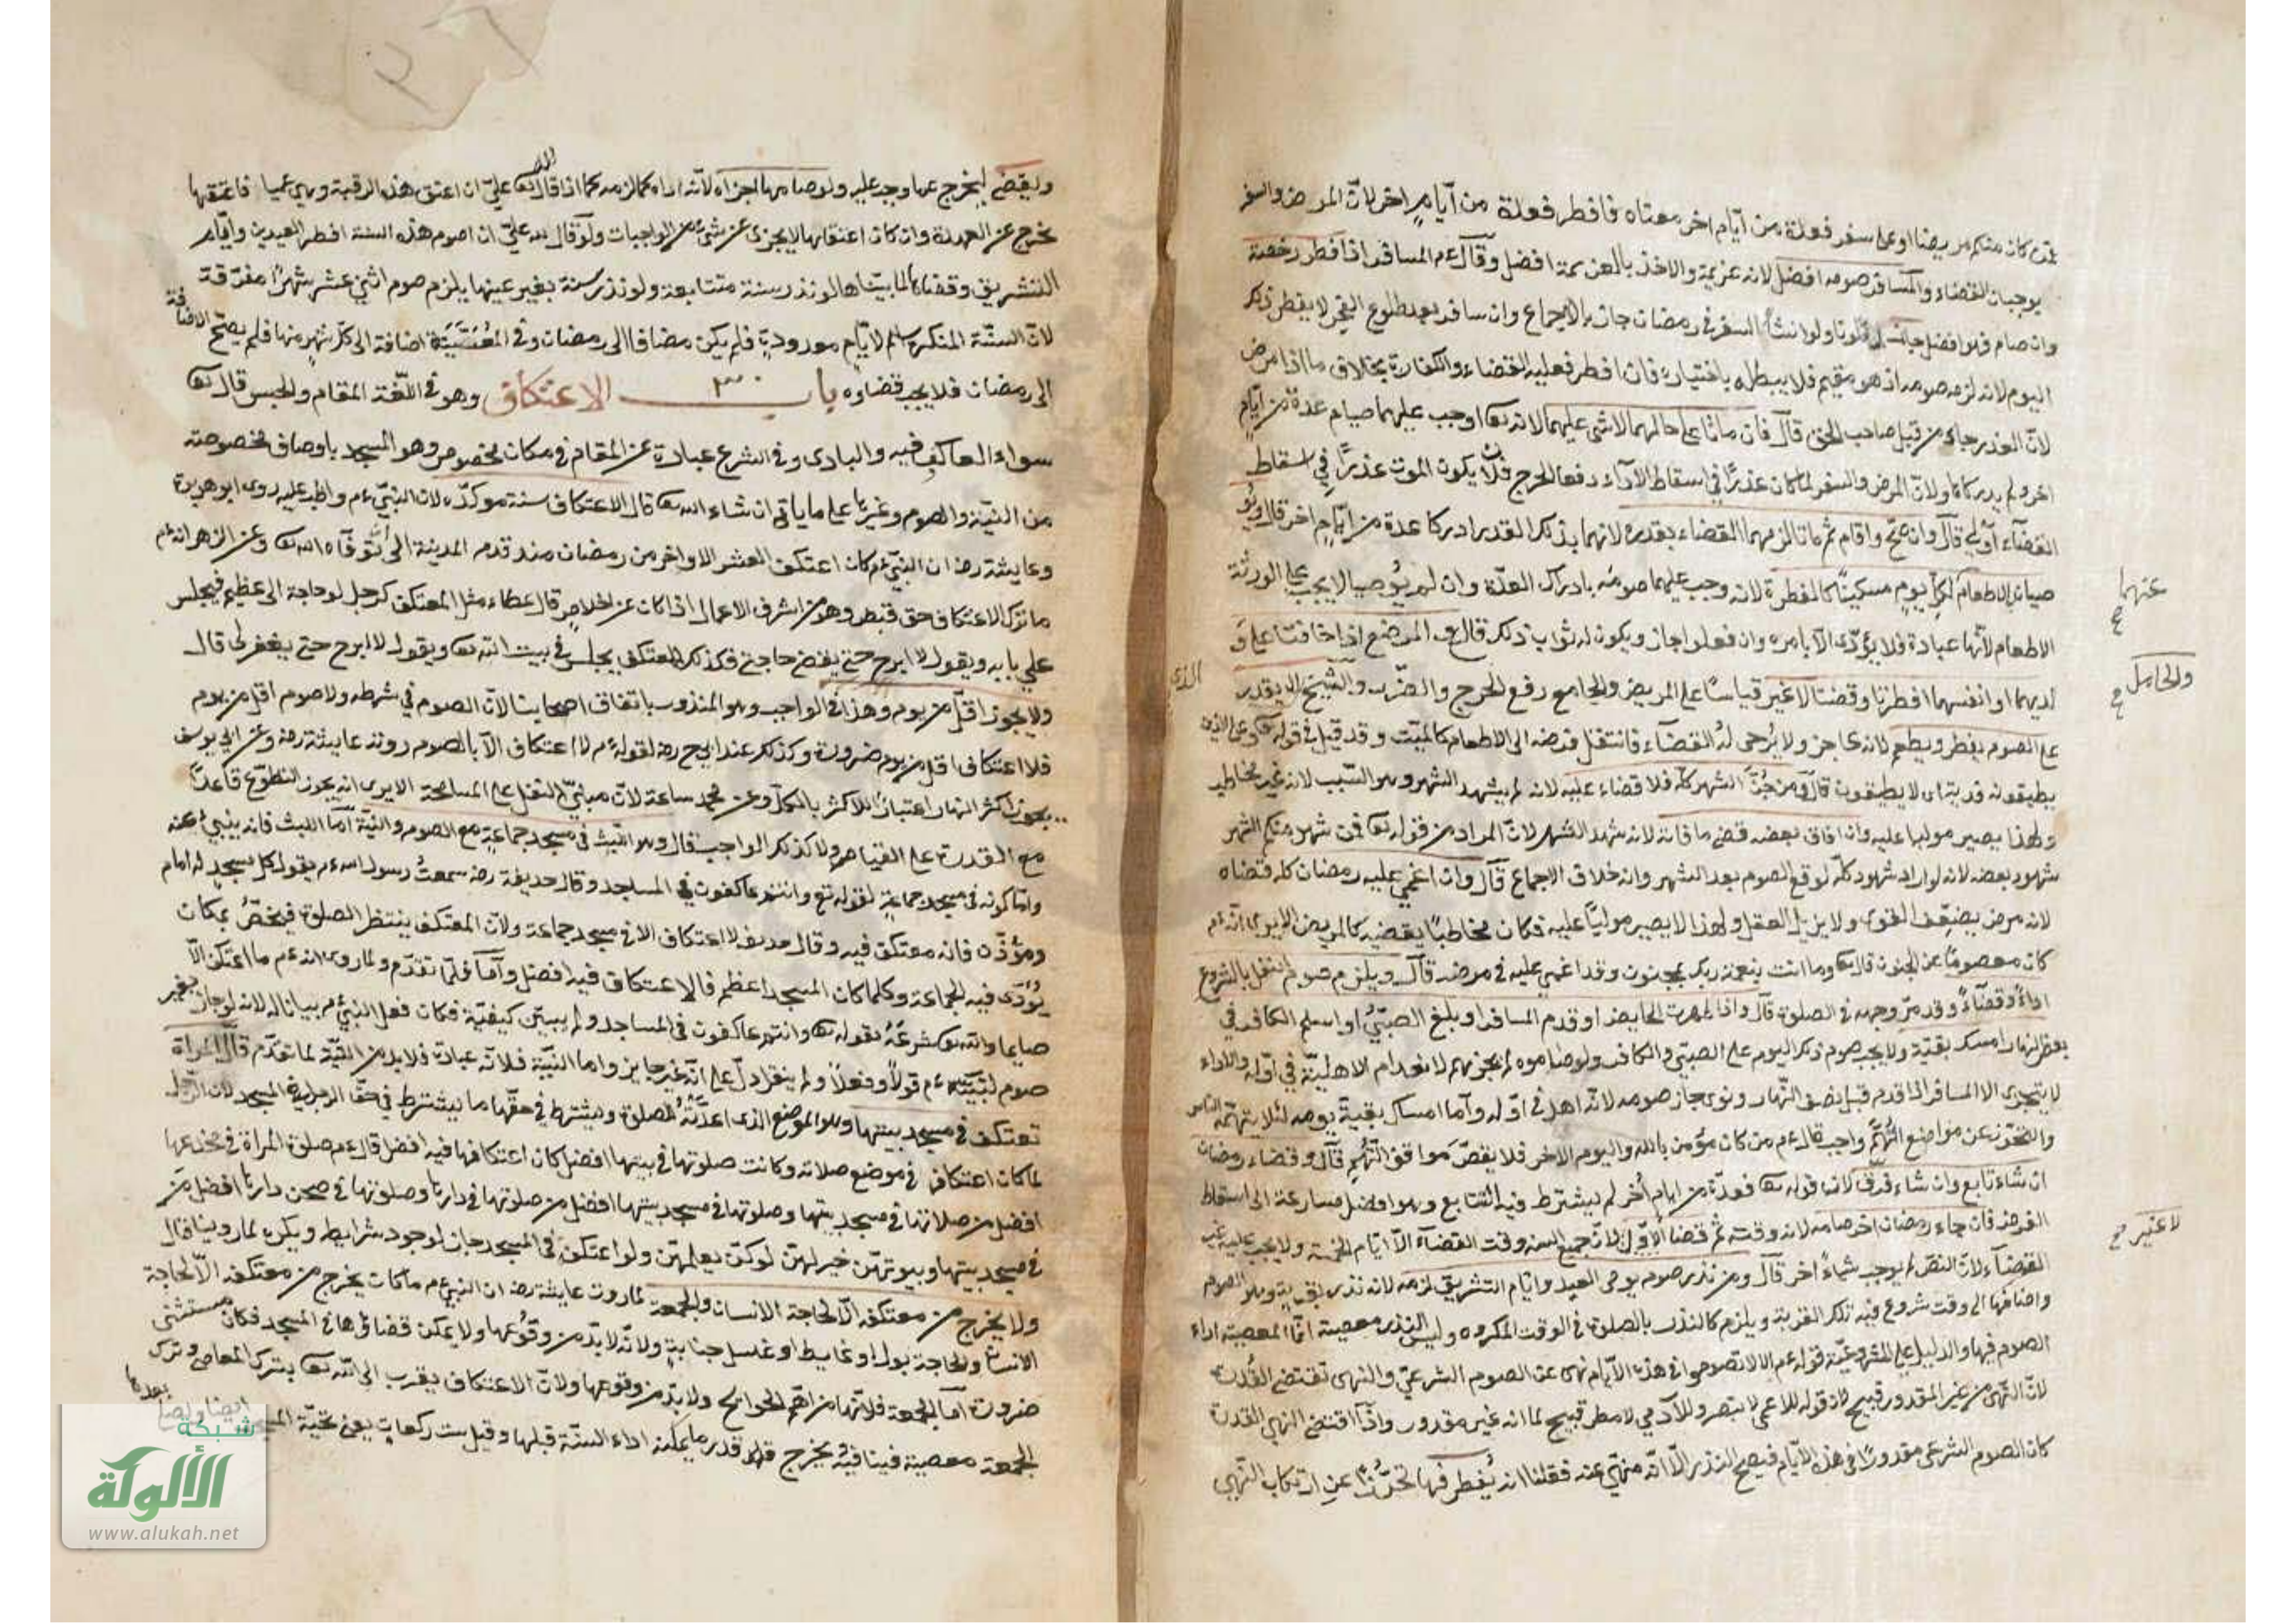 فمن كان منكم مريضا او على سفر فعدة من ايام اخر معناه فافطر فعدة من أيام اخر لانّ المرض والسفر
يوجبان القضاء والمسافر صومه افضل لانه عزيمة والاخذ بالعزيمة افضل وقال ءم المسافر اذا افطر رخصة
وان صام فهو افضل ولو انشأ السفر في رمضان جاز بالاجماع وان سافر بعد طلوع الفجر لا يفطر ذلك
اليوم لانه لزمه صومه اذ هو مقيم فلا يبطله باختياره فان افطر فعليه القضاء والكفارة بخلاف ما اذا مرض
لانّ العذر جاء من قبل صاحب الحق قال فان ماتا على حالهما لا شئ عليهما لانه تعا اوجب عليهما صيام عدة من ايام
اخر ولم يدركاها ولانّ المرض والسفر لما كان عذرًا في اسقاط الاداء دفعا للحرج فلان يكون الموت عذرًا في اسقاط
القضاء أولى قال وان صحّ واقام ثم ماتا لزمهما القضاء بقدره لانهما بذلك القدر ادركا عدة من ايام اخر قال ويو
صيان بالاطعام لكل يوم مسكينًا كالفطرة لانه وجب عليهما صومه بادراك العدّة وان لم يوصيا لا يجب على الورثة
عنهما
الاطعام لأنها عبادة فلا يؤدّى الا بامره وان فعلوا جاز ويكون له ثواب ذلك قال و المرضع اذا خافتا على و
والحامل
لديهما او انفسهما افطرتا وقضتا لا غير قياسًا على المريض والجامع رفع الحرج والضرر والشيخ الذي لا يقدر
على الصوم يفطر ويطعم لانه عاجز ولا يُرجى له القضاء فانتقل فرضه الى الاطعام كالميّت وقد قيل في قوله تعا وعلى الذين
يطيقونه فدية اى لا يطيقون قال ومن جُنّ الشهر كلّه فلا قضاء عليه لانه لم يشهد الشهر وهو السّبب لانه غير مخاطب
ولهذا يصير موليا عليه وان افاق بعضه قضى ما فاته لانه شهد الشهر لانّ المراد من قوله تعا فمن شهد منكم الشهر
شهود بعضه لانه لو اراد شهود كلّه لوقع الصوم بعد الشهر وانه خلاف الاجماع قال وان اغمى عليه رمضان كله قضاه
لانه مرض يضعّف القوى ولا يزيل العقل ولهذا لا يصير موليًا عليه فكان مخاطبًا يقضيه كالمريض الا يرى انّه ءم
كان معصومًا عن الجنون قال تعا وما انت بنعمة ربك بمجنون وقد اغمى عليه في مرضه قال ويلزم صوم النفل بالشروع
اداءً وقضاءً وقد مرّ وجهه في الصلوة قال واذا طهرت الحايض او قدم المسافر او بلغ الصبيّ او اسلم الكافر في
بعض النهار امسك بقيّة ولا يجب صوم ذلك اليوم على الصبيّ والكافر ولو صاموه لم يجزهم لانعدام الاهليّة في أوله والاداء
لا يتجزى الا المسافر اذا قدم قبل نصف النهار ونوى جاز صومه لانّه اهل في اوّله وأما امساك بقيّة يومه لئلا يتهمه الناس
والتحرز عن مواضع التُّهَمِ واجب قال ءم من كان مؤمن بالله واليوم الاخر فلا يقفنّ مواقف التُّهم قال وقضاء رمضان
ان شاء تابع وان شاء فرّق لان قوله تعا فعدّة من ايام أخر لم يشترط فيه التتابع وهو افضل مسارعة الى اسقاط
الفرض فان جاء رمضان اخر صامه لانه وقته ثم قضا الاوّل لانّ جميع السنه وقت القضاء الّا ايّام الخمسة ولا يجب عليه
لا غير
القضاء لانّ النصّ لم يوجب شيئاً اخر قال ومن نذر صوم يومى العيد وايّام التشريق لزمه لانه نذر بقربة وهو الصوم
واضافها الى وقت شروع فيه تلك القربة ويلزم كالنذر بالصلوة في الوقت المكروه وليس النذر معصية انّما المعصية اداء
الصوم فيها والدليل على المشروعيّة قوله ءم الا لا تصوموا في هذه الأيام نهى عن الصوم الشرعيّ والنهى تقتضى القُدرة
لانّ النّهى عن غير المقدور قبيح لان قوله للاعمى لا تبصر وللآدمي لا مطر قبيح لما انه غير مقدور واذا اقتضى النهى القدرة
كان الصوم الشرعى مقدورًا في هذه الايّام فيصح النذر الّا انّه منهىّ عنه فقلنا انه يُفطر فيها تحرُّزًا عن ارتكاب النّهى
ويقضى ليخرج عما وجب عليه ولو صامها اجزاه لأنّه اداه كما لزمه كما اذا قال لله تعا عليّ ان اعتق هذه الرقبة وهي عميا فاعتقها
يخرج عن العهدة وان كان اعتقها لا يجزى عن شئ من الواجبات ولو قال لله عليّ ان اصوم هذه السنة افطر العيدين وايّام
التشريق وقضاها لما بيّنا ولو نذر سنة متتابعة ولو نذر سنة بغير عينها يلزم صوم اثنى عشر شهرًا متفرقة
لانّ السنّة المنكره اسم لايّام معدودةٍ فلم يكن مضافا الى رمضان وفي المعيّنة اضافة الى كل شهر منها فلم يصحّ الاضافة
الى رمضان فلا يجب قضاوه باب الاعتكاف وهو في اللّغة المقام والحبس قال تعا
سواءً العاكف فيه والبادى وفي الشرع عبادة عن المقام في مكان مخصوص وهو المسجد باوصاف مخصوصة
من النيّة والصوم وغيرها على ما ياتى ان شاء الله تعا قال الاعتكاف سنة موكدّه لان النبيّ ءم واظب عليه روى ابو هريرة
وعايشة رضه ان النبيّ ءم كان اعتكف العشر الاواخر من رمضان منذ قدم المدينة الى أن توفّاه الله تعا وعن الزهر انه ءم
ما ترك الاعتكاف حتى قبض وهو من اشرف الاعمال اذا كان عن اخلاص قال عطاء مثل المعتكف كرجل له حاجة الى عظيم فيجلس
على بابه ويقول لا ابرح حتى يقضى حاجتى فكذلك المعتكف يجلس في بيت الله تعا ويقول لا ابرح حتى يغفر لى قال
ولا يجوز اقلّ من يوم وهذا في الواجب وهو المنذور باتفاق اصحابنا لانّ الصوم في شرطه ولا صوم اقل من يوم
فلا اعتكاف اقل من يوم ضرورة وكذلك عند ابى ح رضه لقوله ءم لا اعتكاف الا بالصوم روته عايشة رضه وعن ابى يوسف
يجوز اكثر النهار اعتبارًا للاكثر بالكلّ وعن محمد ساعة لانّ مبنىّ النفل على المسامحة الا يرى انه يجوز التطوّع قاعدًا
مع القدرة على القيام ولا كذلك الواجب قال وهو اللبث في مسجد جماعةٍ مع الصوم والنيّة أمّا اللبث فانه ينبئ عنه
وامّا كونه في مسجد جماعةٍ لقوله تع وانتم عاكفون في المساجد وقال حذيفة رضه سمعتُ رسول الله ءم يقول كل مسجدٍ له امام
ومؤذّن فانه معتكف فيه وقال حذيفه لا اعتكاف الا في مسجد جماعة ولانّ المعتكف ينتظر الصلوة فيختصّ بمكان
يؤدّى فيه الجماعة وكلما كان المسجد اعظم فالاعتكاف فيه افضل وأمّا فلما تقدّم ولما روى انه ءم ما اعتكف الّا
صايما والله تعا شرعه بقوله تعا وانتم عاكفون في المساجد ولم يبيّن كيفيّة فكان فعل النبيّ ءم بيانا له لانه لو جاز بغير
صوم لبيّنه ءم قولًا وفعلًا ولم ينقل دلّ على أنّه غير جايز واما النيّة فلانّه عبادة فلا بد من النيّة لما تقدّم قال المراة
تعتكف في مسجد بيتها وهو الموضع الذى اعدّته للصلوة ويشترط في حقّها ما يشترط في حقّ الرجل في المسجد لانّ الرّجل
لما كان اعتكافه في موضع صلاته وكانت صلوتها في بيتها افضل كان اعتكافها فيه افضل قال ءم صلوة المراة في مخدعها
افضل من صلاتها في مسجد بيتها وصلوتها في مسجد بيتها افضل من صلوتها في دارها وصلوتها في صحن دارها افضل من
في مسجد بيتها وبيوتهنّ خير لهنّ لو كنّ يعلمن ولو اعتكف في المسجد جاز لوجود شرايطه ويكره لما روينا قال
ولا يخرج من معتكفه الّا لحاجة الانسان والجمعة لما روت عايشة رضه ان النبيّ ءم ما كان يخرج من معتكفه الّا لحاجة
الانسان والحاجة بول او غايط او غسل جنابةٍ ولانّه لا بدّ من وقوعها ولا يمكن قضاؤها في المسجد فكان مستثنى
ضرورة أمّا الجمعة فلانّها من اهمّ الحوايج ولا بدّ من وقوعها ولانّ الاعتكاف يقرب الى الله تعا بترك المعاصى وترك
الجمعة معصية فينافيه ويخرج قدر ما يمكنه اداء السنّة قبلها وقيل ست ركعاتٍ يعنى تحيّة
شبكة
الألوكة
www.alukah.net